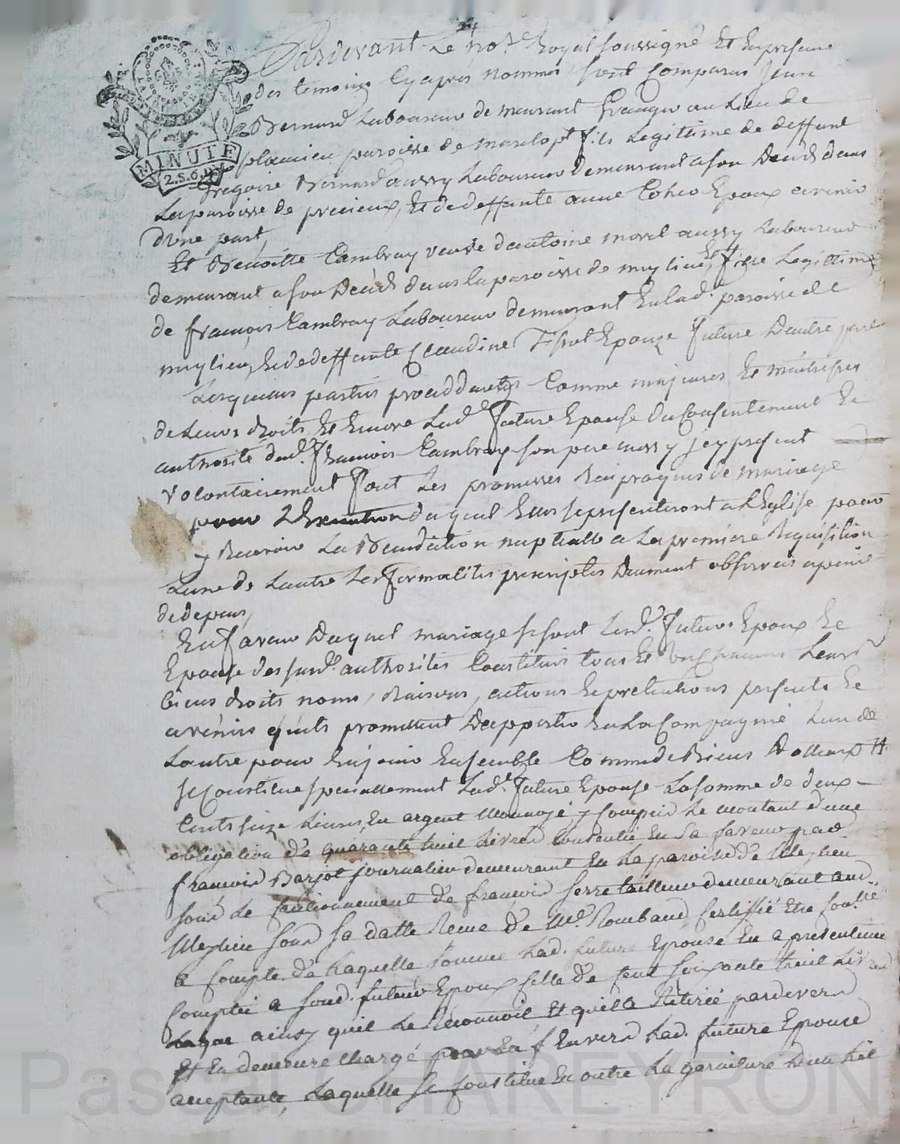 MINUTE
2.S.6.D
Pardevant Le not.e Royal soussigné Et En presence
des temoins Cy apres nommés sont Comparus Jean
Bernard Laboureur demeurant au Lieu de
paroisse de fils Legitime de deffunt
Gregoire Bernard aussy Laboureur demeurant a son Deces dans
La paroisse de precieux, Et de deffunte anne Epoux avenir
D'une part,
Et Benoitte Cambray veuve d'antoine morel aussy Laboureur
demeurant a son Deces dans la paroisse de mizlieu, Et fille Legittime
de francois Cambray Laboureur demeurant En lad. paroisse de
mizlieu, Et de deffunte Claudine Epouze future D'autre part
Lesquelles parties procedantes Comme majeures Et maitresses
de Leurs droits, Et Encore Lad.e future Epouse Du Consentement Et
authorité dud. francois Cambray son pere aussy icy present
volontairement font Les promesses Reciproques de mariage
pour L'Execution duquel Elles se presenteront a L'Eglise pour
y Recevoir La Benediction nuptialle a La premiere Requisition
L'une de L'autre Les formalités prescriptes Deument observées a peine
de depens,
En faveur Duquel mariage se sont Lesd. futurs Epoux Et
Epouse des susd. authorités Constitués tous Et un chacuns Leurs
biens droits noms, Raisons, actions Et pretentions presents Et
avenirs qu'ils promettent D'apporter En La Compagnie L'un de
L'autre pour En jouir Ensemble Comme de Biens Dotteaux
se Constitue specialement Lad.e future Epouse La somme de deux
Cents seize Livres, En argent monnoyé y Compris Le montant d'une
obligation de quarante huit Livres Consentie En sa faveur par
francois Barjot journalier demeurant En La paroisse de Mizlieu
sous Le Cautionnement de francois serre tailleur demeurant aud.
Mizlieu sous sa datte Reçue de M.e Rombaud Certiffié Etre
a Compte de Laquelle somme Lad. future Epouse En a presentement
Compté a sond. futur Epoux Celle de Cent soixante huit Livres
ainsy qu'il Le Reconnoit Et qu'il a Retirée pardevers
Et En demeure Chargé Envers Lad. future Epouse
acceptante, Laquelle se Constitue En outre La garniture D'un Lit
Pascal CHAREYRON